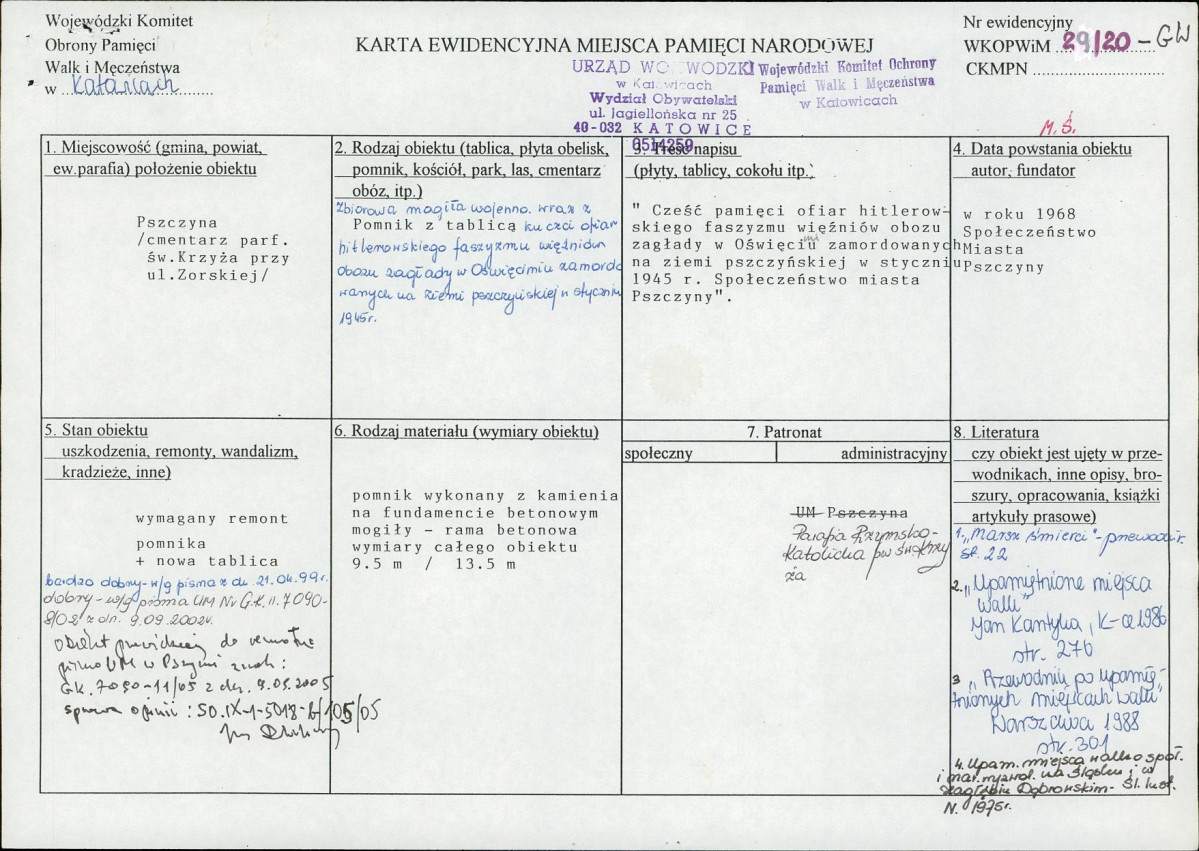 Wojewódzki Komitet
Obrony Pamięci
Walk i Męczeństwa
w Katowicach
KARTA EWIDENCYJNA MIEJSCA PAMIĘCI NARODOWEJ
URZĄD WOJEWODZKI
w Katowicach
Wydział Obywatelski
ul. Jagiellońska nr 25
40-032 KATOWICE
0514259
Wojewódzki Komitet Ochrony
Pamięci Walk i Męczeństwa
w Katowicach
Nr ewidencyjny
WKOPWiM 29/20 - GW
CKMPN
M.Ś.
1. Miejscowość (gmina, powiat,
ew.parafia) położenie obiektu
Pszczyna
/cmentarz parf.
św.Krzyża przy
ul.Zorskiej/
2. Rodzaj obiektu (tablica, płyta obelisk,
pomnik, kościół, park, las, cmentarz
obóz, itp.)
Zbiorowa mogiła wojenna wraz z
Pomnik z tablicą ku czci ofiar
hitlerowskiego faszyzmu więźniów
obozu zagłady w Oświęcimiu zamordo
wanych na ziemi pszczyńskiej w styczniu
1945r.
3. Treść napisu
(płyty, tablicy, cokołu itp.)
" Cześć pamięci ofiar hitlerow-
skiego faszyzmu więźniów obozu
zagłady w Oświęciu zamordowanych
mi
na ziemi pszczyńskiej w styczniu
1945 r. Społeczeństwo miasta
Pszczyny".
4. Data powstania obiektu
autor, fundator
w roku 1968
Społeczeństwo
Miasta
Pszczyny
5. Stan obiektu
uszkodzenia, remonty, wandalizm,
kradzieże, inne)
wymagany remont
pomnika
+ nowa tablica
bardzo dobry - w/g pisma z dn. 21.04.99r.
dobry - w/g pisma UM Nr G.K.II.7090-
8/02 z dn. 9.09.2002r.
Obiekt do remontu
pismo UM w Pszczynie znak:
GK. 7090-11/05 z dn. 9.05.2005
sprawa opinii : SO.IX-1-5018-6/105/05
6. Rodzaj materiału (wymiary obiektu)
pomnik wykonany z kamienia
na fundamencie betonowym
mogiły - rama betonowa
wymiary całego obiektu
9.5 m / 13.5 m
7. Patronat
społeczny
administracyjny
UM Pszczyna
Parafia Rzymsko-
Katolicka pw św. Krzy
ża
8. Literatura
czy obiekt jest ujęty w prze-
wodnikach, inne opisy, bro-
szury, opracowania, książki
artykuły prasowe)
1. "Marsz śmierci" - przewodnik
st. 22
2. "Upamiętnione miejsca
walk"
Jan Kantyka, K-ce 1986
str. 276
3 "Przewodnik po upamię-
tnionych miejscach walk"
Warszawa 1988
str. 301
4. Upam. miejsca walk o społ.
i nar. wyzwol. na Śląsku i w
Zagłębiu Dąbrowskim - Śl. Inst.
N. 1975r.